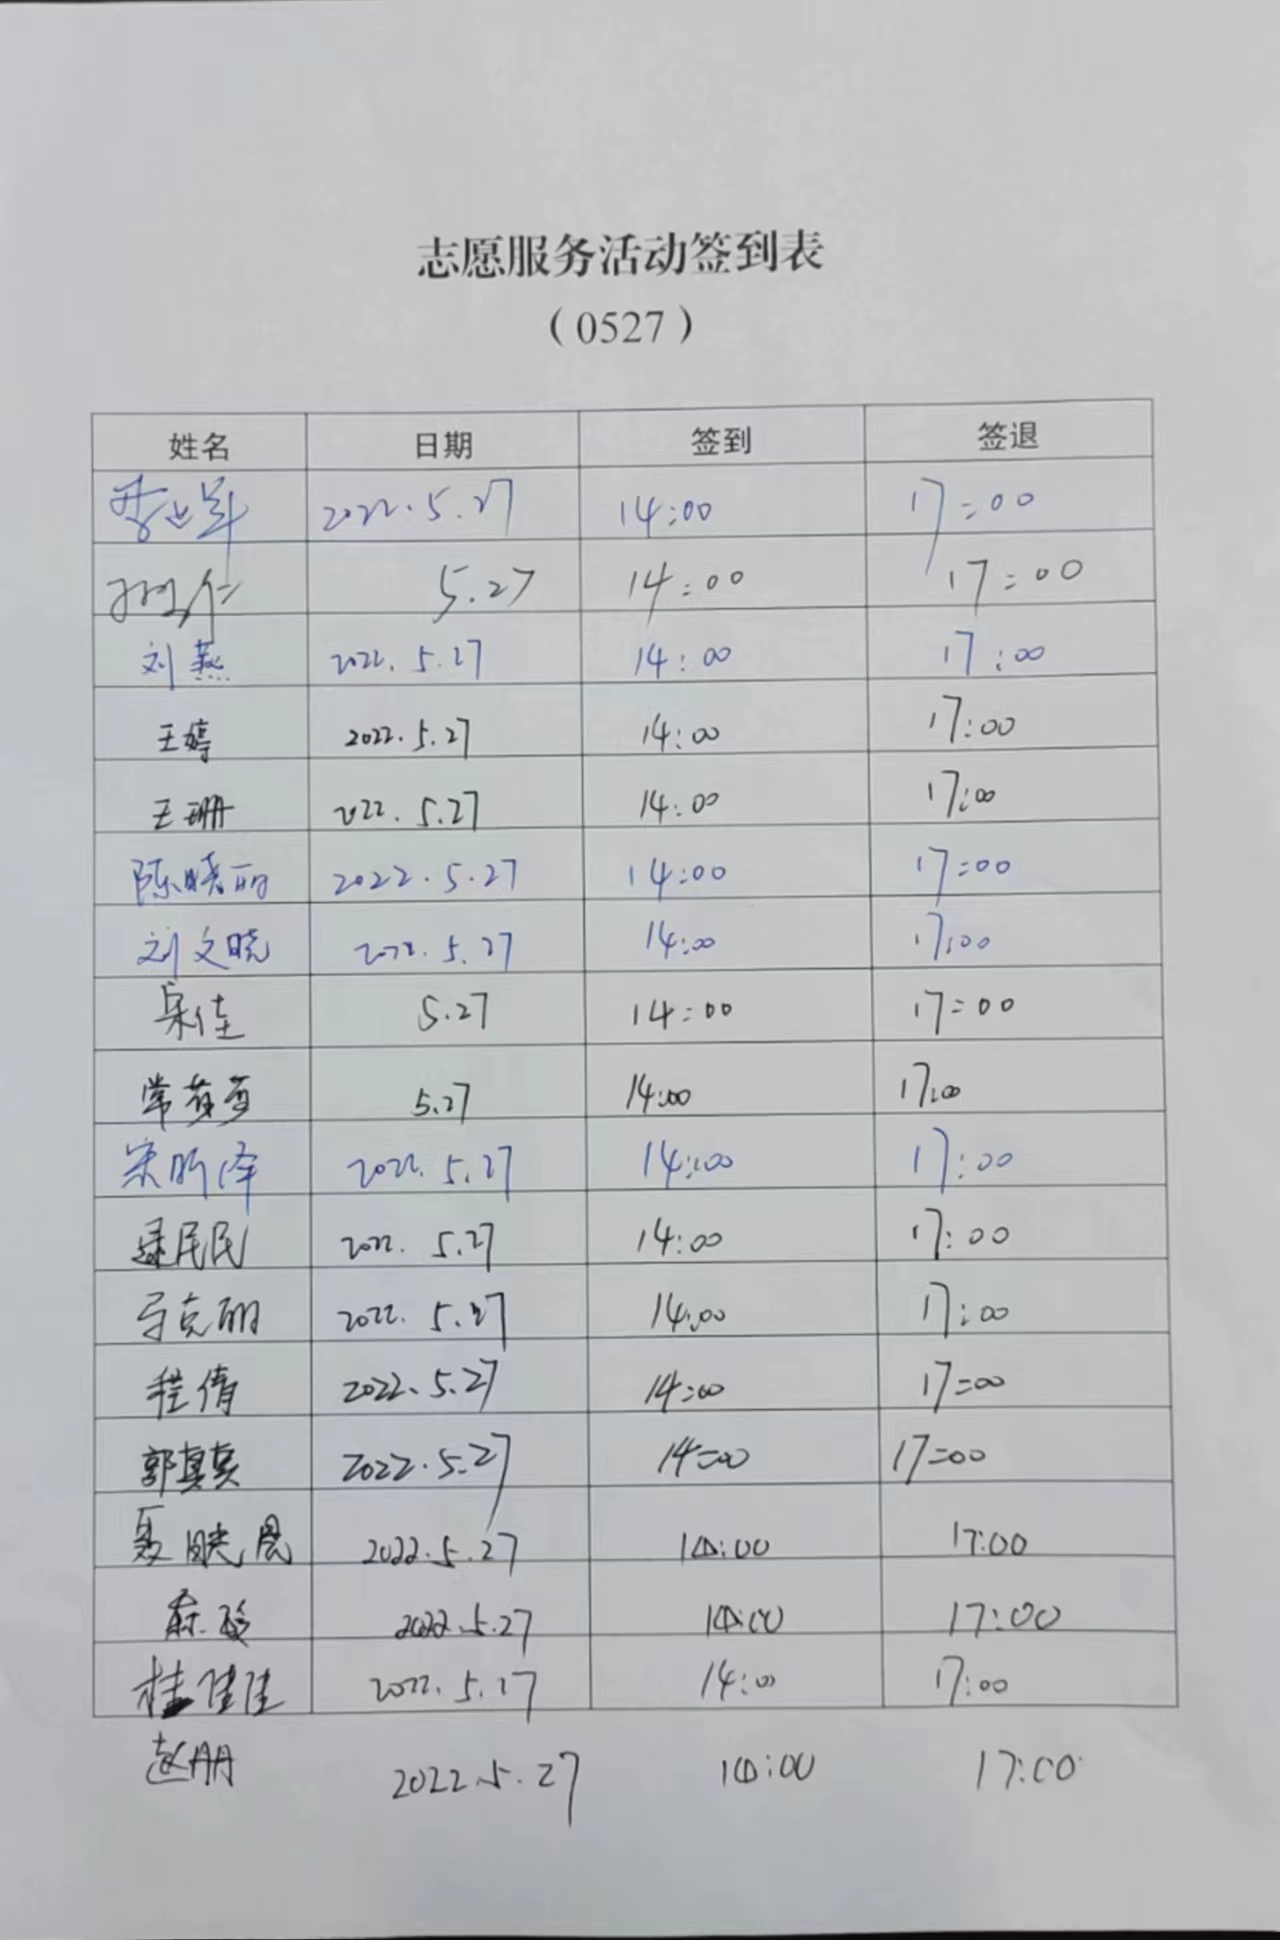 志愿服务活动签到表
（0527）
姓名 日期 签到 签退
2022.5.27 14:00 17:00
5.27 14:00 17:00
刘燕 2022.5.27 14:00 17:00
王婷 2022.5.27 14:00 17:00
王珊 2022.5.27 14:00 17:00
陈晓丽 2022.5.27 14:00 17:00
刘文晓 2022.5.27 14:00 17:00
5.27 14:00 17:00
5.27 14:00 17:00
宋昕泽 2022.5.27 14:00 17:00
逯民民 2022.5.27 14:00 17:00
于克丽 2022.5.27 14:00 17:00
程倩 2022.5.27 14:00 17:00
郭真真 2022.5.27 14:00 17:00
聂晓凤 2022.5.27 14:00 17:00
2022.5.27 14:00 17:00
桂佳佳 2022.5.27 14:00 17:00
赵朋 2022.5.27 14:00 17:00